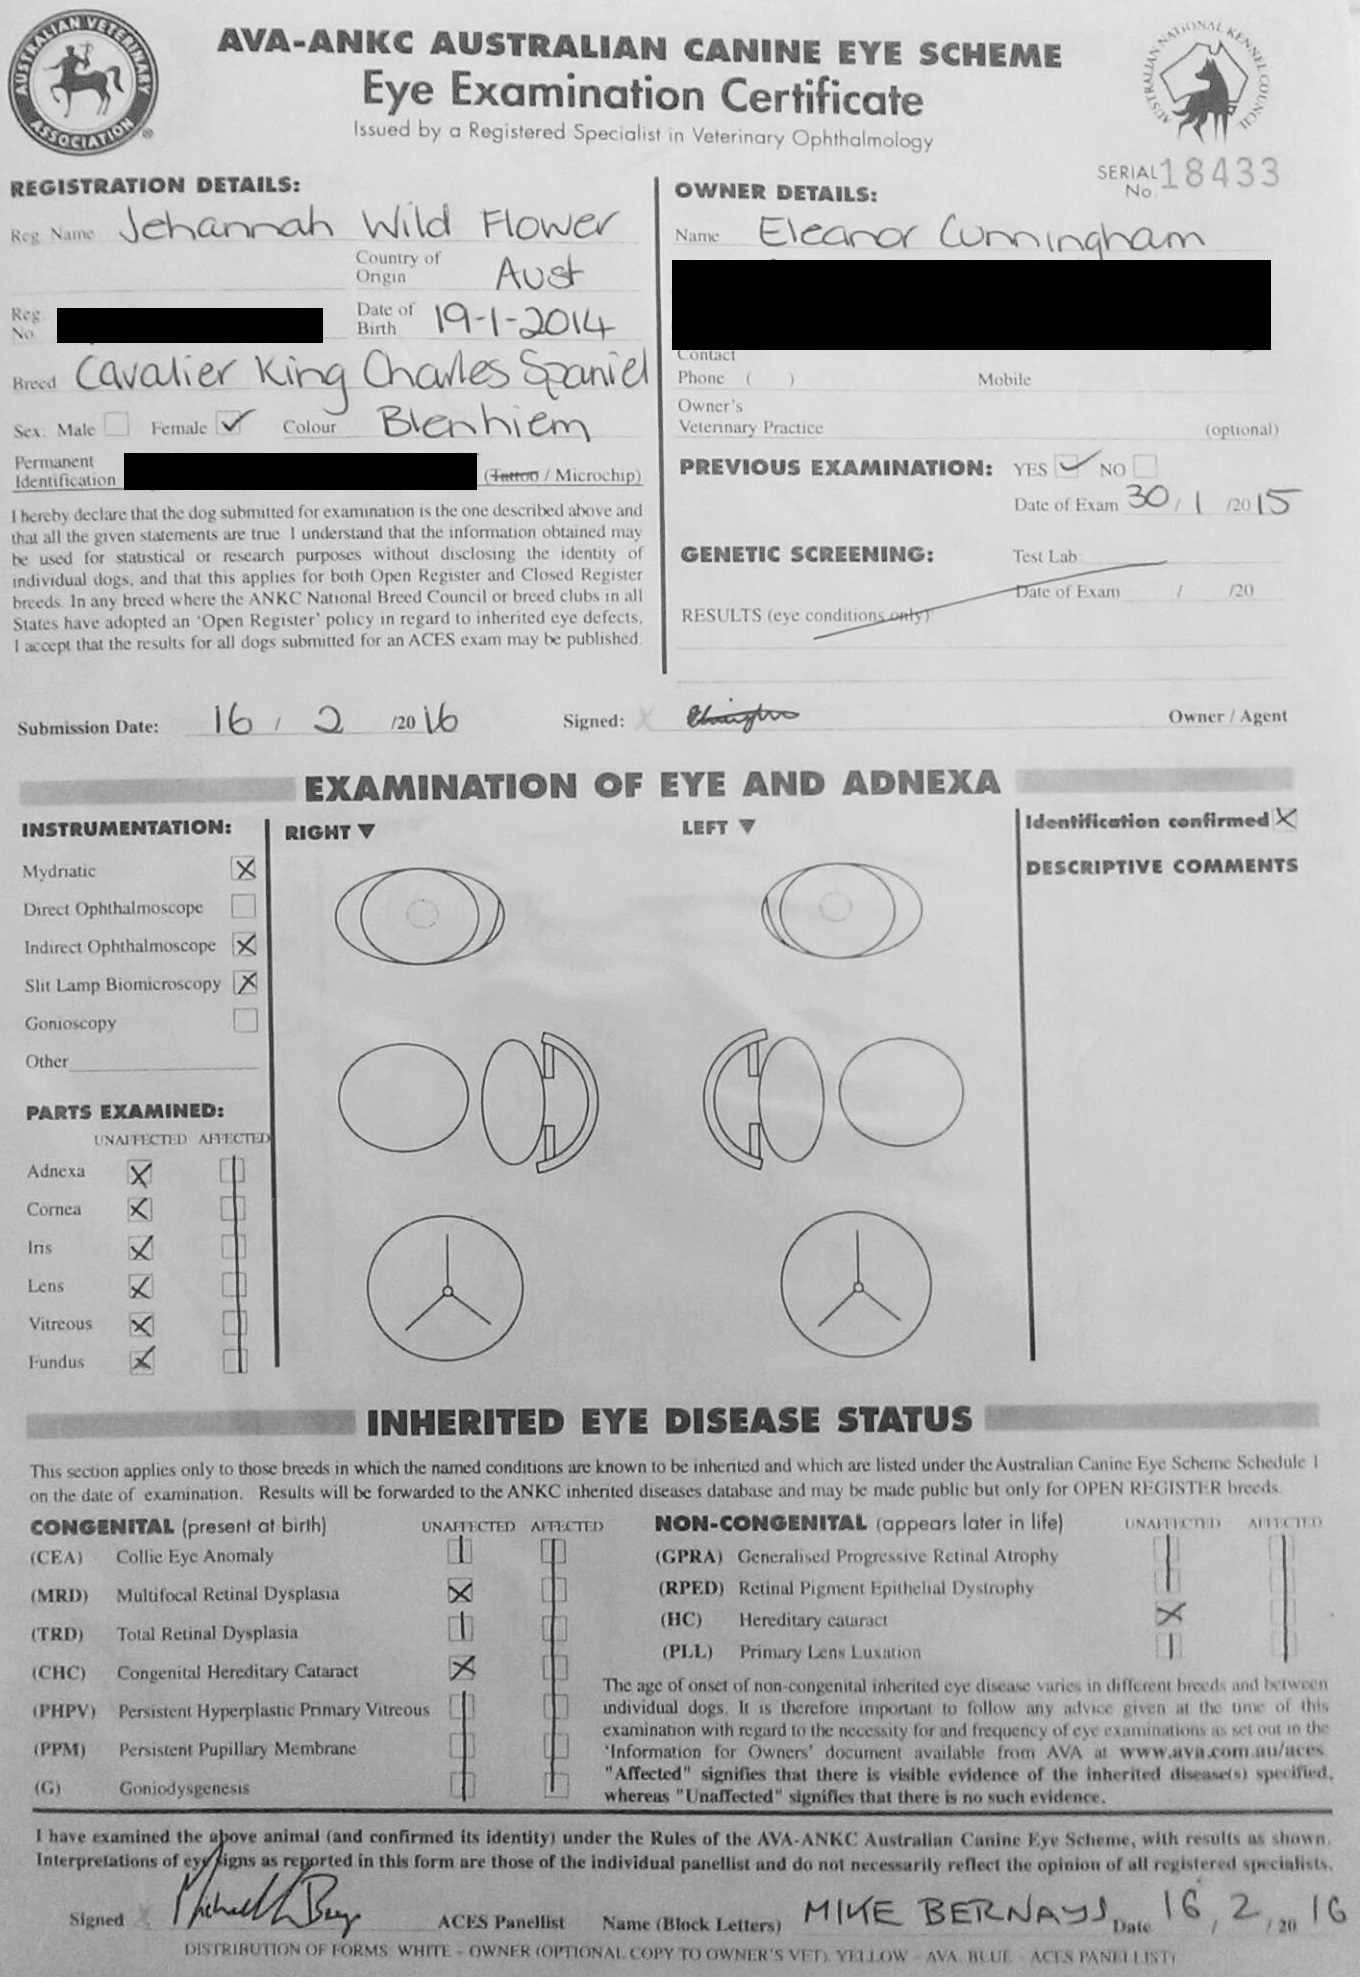 AUSTRALIAN VETERINARY ASSOCIATION
AVA-ANKC AUSTRALIAN CANINE EYE SCHEME
Eye Examination Certificate
Issued by a Registered Specialist in Veterinary Ophthalmology
AUSTRALIAN NATIONAL KENNEL COUNCIL
SERIAL No. 18433
REGISTRATION DETAILS:
Reg. Name Jehannah Wild Flower
Country of Origin Aust
Reg. No.
Date of Birth 19-1-2014
Breed Cavalier King Charles Spaniel
Sex: Male Female ✓ Colour Blenhiem
Permanent Identification (Tattoo / Microchip)
I hereby declare that the dog submitted for examination is the one described above and
that all the given statements are true. I understand that the information obtained may
be used for statistical or research purposes without disclosing the identity of
individual dogs, and that this applies for both Open Register and Closed Register
breeds. In any breed where the ANKC National Breed Council or breed clubs in all
States have adopted an 'Open Register' policy in regard to inherited eye defects,
I accept that the results for all dogs submitted for an ACES exam may be published.
OWNER DETAILS:
Name Eleanor Cunningham
Contact
Phone ( ) Mobile
Owner's
Veterinary Practice (optional)
PREVIOUS EXAMINATION: YES ✓ NO
Date of Exam 30 / 1 /2015
GENETIC SCREENING: Test Lab
Date of Exam / /20
RESULTS (eye conditions only)
Submission Date: 16 / 2 /2016 Signed: X Owner / Agent
EXAMINATION OF EYE AND ADNEXA
INSTRUMENTATION:
Mydriatic X
Direct Ophthalmoscope
Indirect Ophthalmoscope X
Slit Lamp Biomicroscopy X
Gonioscopy
Other
PARTS EXAMINED:
UNAFFECTED AFFECTED
Adnexa X
Cornea X
Iris X
Lens X
Vitreous X
Fundus X
RIGHT ▼
LEFT ▼
Identification confirmed X
DESCRIPTIVE COMMENTS
INHERITED EYE DISEASE STATUS
This section applies only to those breeds in which the named conditions are known to be inherited and which are listed under the Australian Canine Eye Scheme Schedule 1
on the date of examination. Results will be forwarded to the ANKC inherited diseases database and may be made public but only for OPEN REGISTER breeds.
CONGENITAL (present at birth) UNAFFECTED AFFECTED
(CEA) Collie Eye Anomaly
(MRD) Multifocal Retinal Dysplasia X
(TRD) Total Retinal Dysplasia
(CHC) Congenital Hereditary Cataract X
(PHPV) Persistent Hyperplastic Primary Vitreous
(PPM) Persistent Pupillary Membrane
(G) Goniodysgenesis
NON-CONGENITAL (appears later in life) UNAFFECTED AFFECTED
(GPRA) Generalised Progressive Retinal Atrophy
(RPED) Retinal Pigment Epithelial Dystrophy
(HC) Hereditary cataract X
(PLL) Primary Lens Luxation
The age of onset of non-congenital inherited eye disease varies in different breeds and between
individual dogs. It is therefore important to follow any advice given at the time of this
examination with regard to the necessity for and frequency of eye examinations as set out in the
'Information for Owners' document available from AVA at www.ava.com.au/aces
"Affected" signifies that there is visible evidence of the inherited disease(s) specified,
whereas "Unaffected" signifies that there is no such evidence.
I have examined the above animal (and confirmed its identity) under the Rules of the AVA-ANKC Australian Canine Eye Scheme, with results as shown.
Interpretations of eye signs as reported in this form are those of the individual panellist and do not necessarily reflect the opinion of all registered specialists.
Signed X ACES Panellist Name (Block Letters) MIKE BERNAYS Date 16 / 2 / 2016
DISTRIBUTION OF FORMS: WHITE - OWNER (OPTIONAL COPY TO OWNER'S VET). YELLOW - AVA. BLUE - ACES PANELLIST